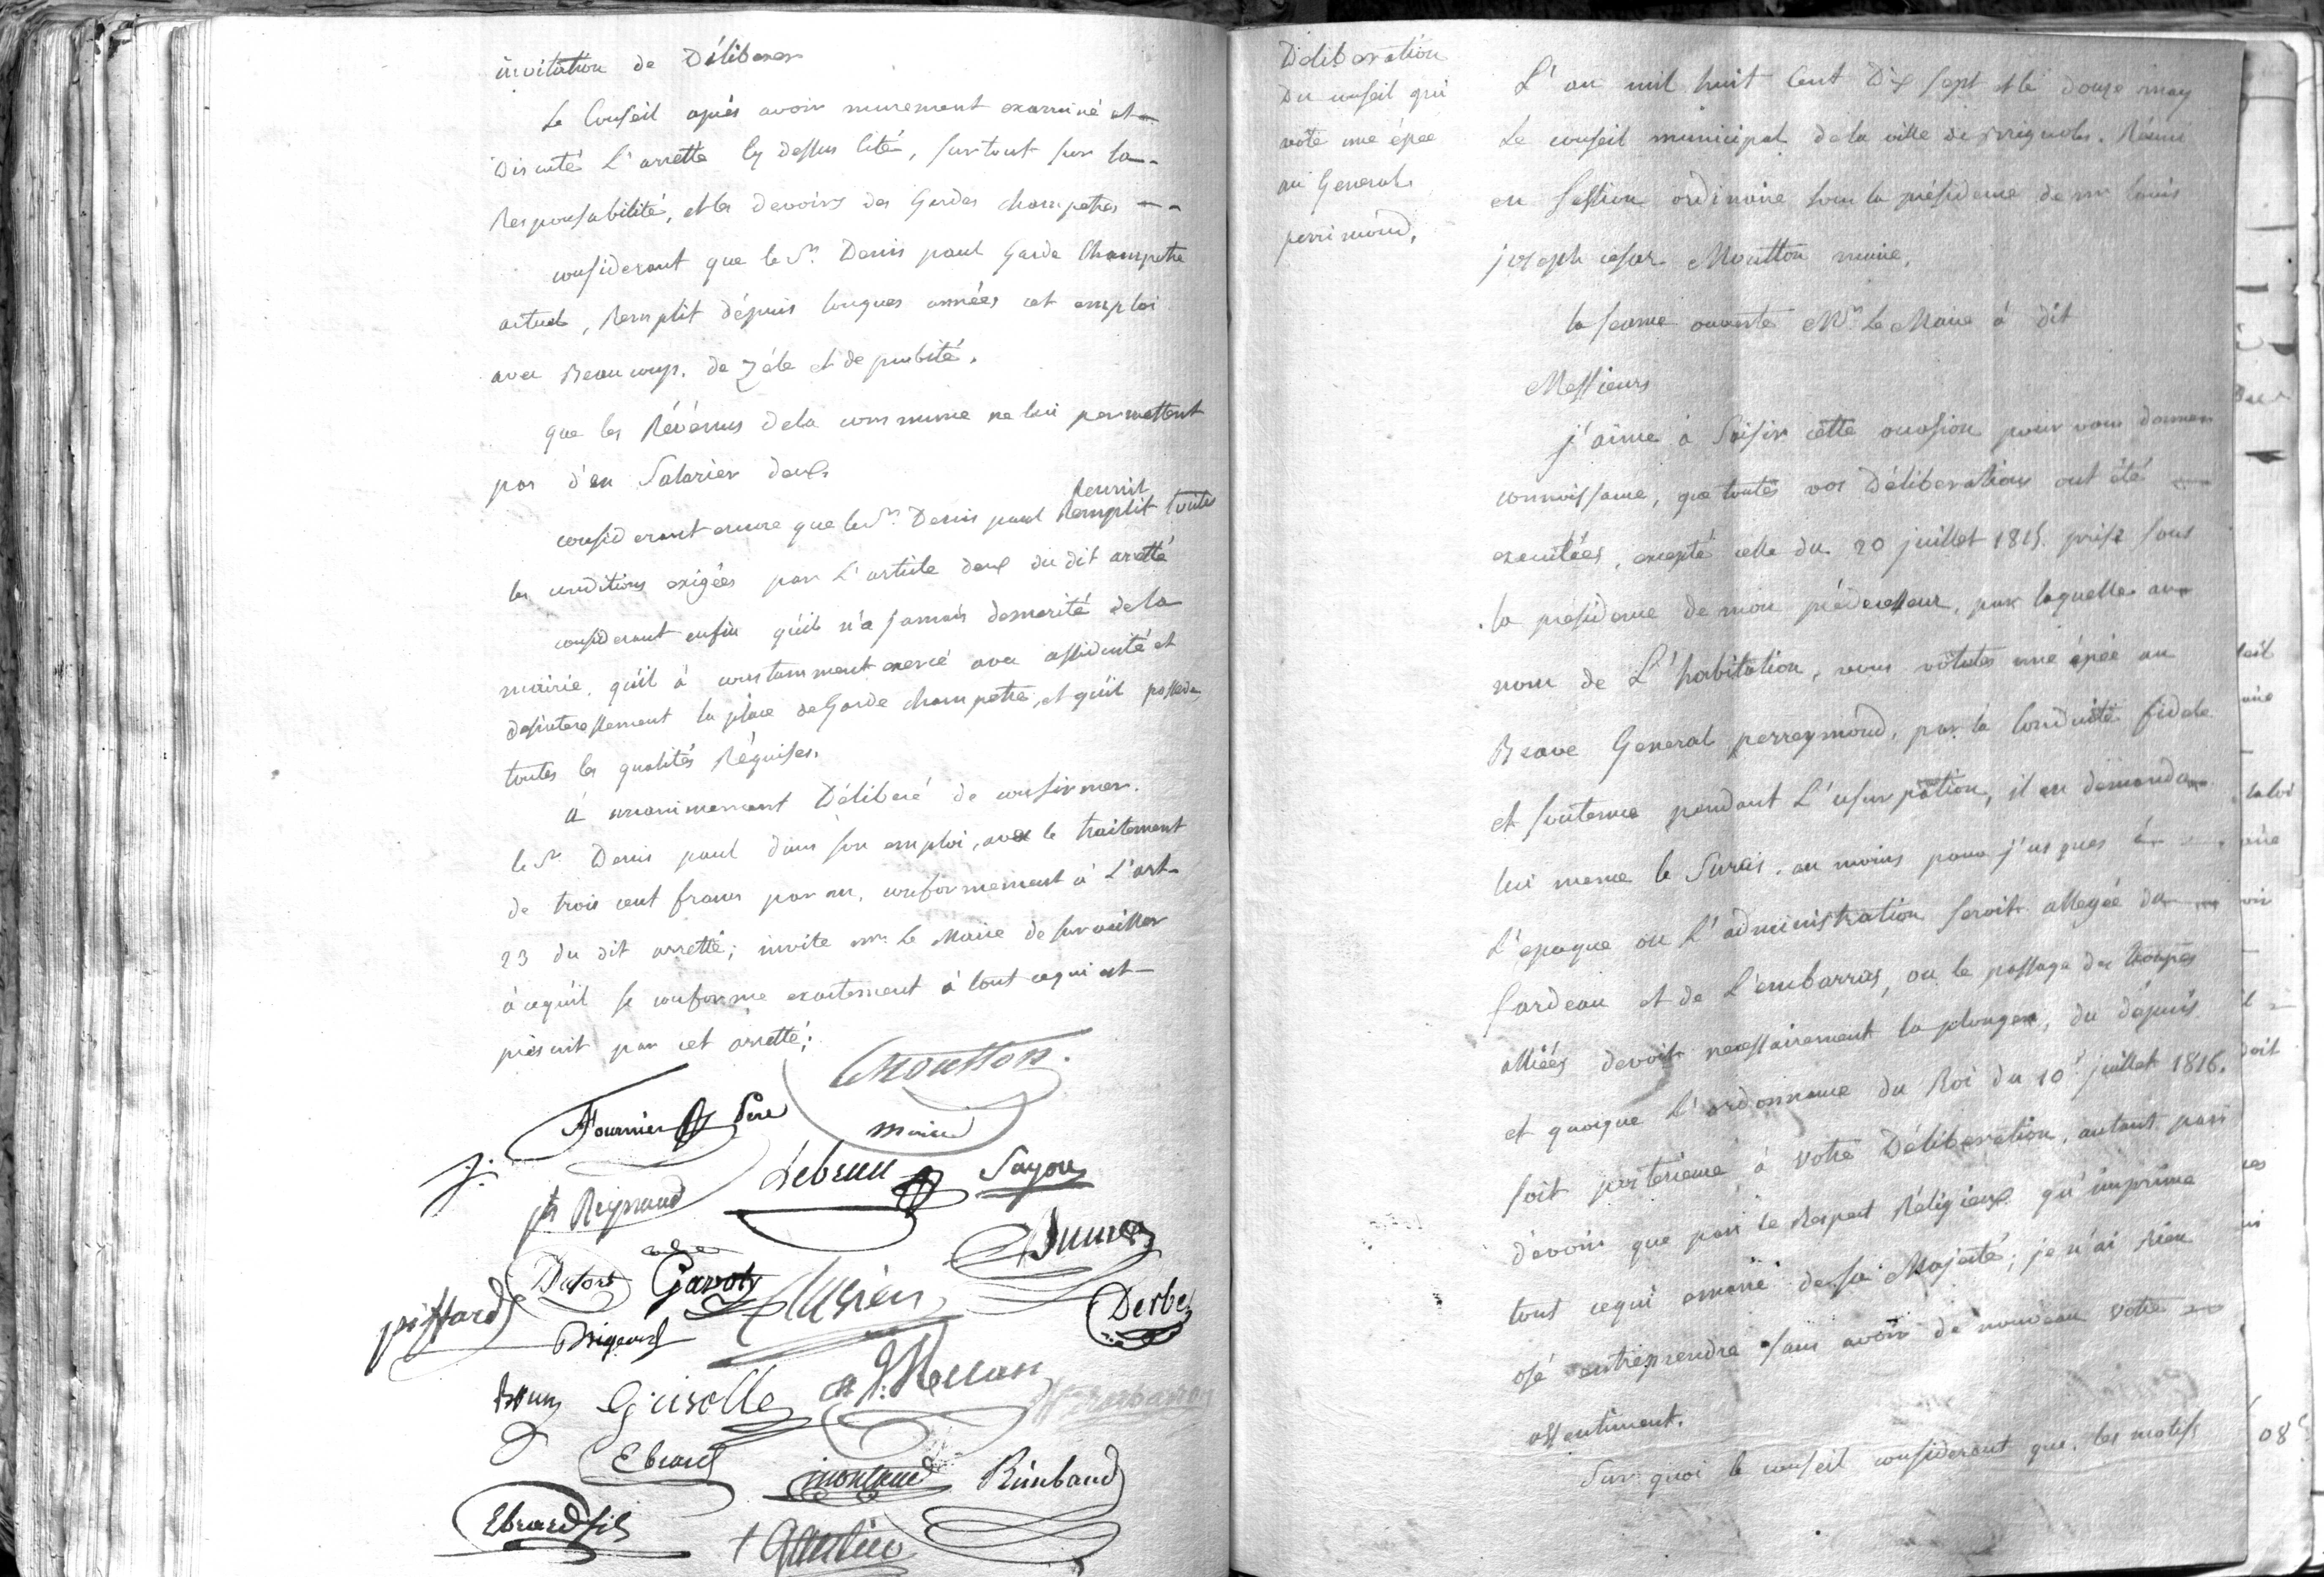 invitation de Déliberer
Le Conseil après avoir murement examiné et
Discuté L'arretté Cy dessus Cité, surtout sur la
Responsabilité, et les devoirs des Gardes champetres
considerant que le Sr. Denis paul Garde Champetre
actuel, Remplit dépuis longues années cet emploi
avec Beaucoup. de Zéle et de probité.
que les Révénus dela commune ne lui permettent
pas d'en Salarier deux
reunit
considerant encore que le Sr. Denis paul Remplit toutes
les conditions exigées par L'article deux du dit arretté
considerant enfin qu'il n'a jamais demerité dela
mairie, qu'il à constamment exercé avec assiduité et
desinteressement la place de Garde champetre, et qu'il possede
toutes les qualités Réquises.
à unanimement Déliberé de confirmer.
le Sr. Denis paul dans son emploi, avec le traitement
de trois cent francs par an, conformement à L'art.
23 du dit arretté; invite mr. Le Maire de surveiller
à cequ'il se conforme exactement à tout cequi est
préscrit par cet arretté;
Moutton.
maire
Fournier Pere
Lebrun Sayou
js Reynaud
Gavoty
piffard
Brun Grisolle
Ebrard
Rimbaud
Ebrard fils
Déliberation
Du conseil qui
vote une épée
au General
perrimond,
L'an mil huit Cent Dix sept et le douze may
Le conseil municipal dela ville de Brignoles. Réuni
en Session ordinaire sous la présidence de mr louis
joseph cesar Moutton maire,
la seance ouverte Mr. Le Maire à dit
Messieurs
j'aime à Saisir cette occasion pour vous donner
connoissance, que toutes vos Déliberations ont été
executées, excepté celle du 20 juillet 1815. prise sous
la présidence de mon prédecesseur, par laquelle au
nom de L'habitation, vous vôtates une épée au
Brave General perreymond, par la Conduite fidele
et soutenue pendant L'usurpation, il en demanda
lui meme le Sursis, au moins pour j'usques à
L'epoque ou L'administration seroit allegée du
fardeau et de L'embarras, ou le passage des troupes
alliées devoit necessairement la plonger, du dépuis
et quoique L'ordonnance du Roi du 10 juillet 1816.
soit posterieure à votre Déliberation, autant par
dévoir que par le Respect Réligieux qu'imprime
tout cequi emane de sa Majesté; je n'ai Rien
osé entreprendre sans avoir de nouveau votre
assentiment.
Sur quoi le conseil considerant que les motifs